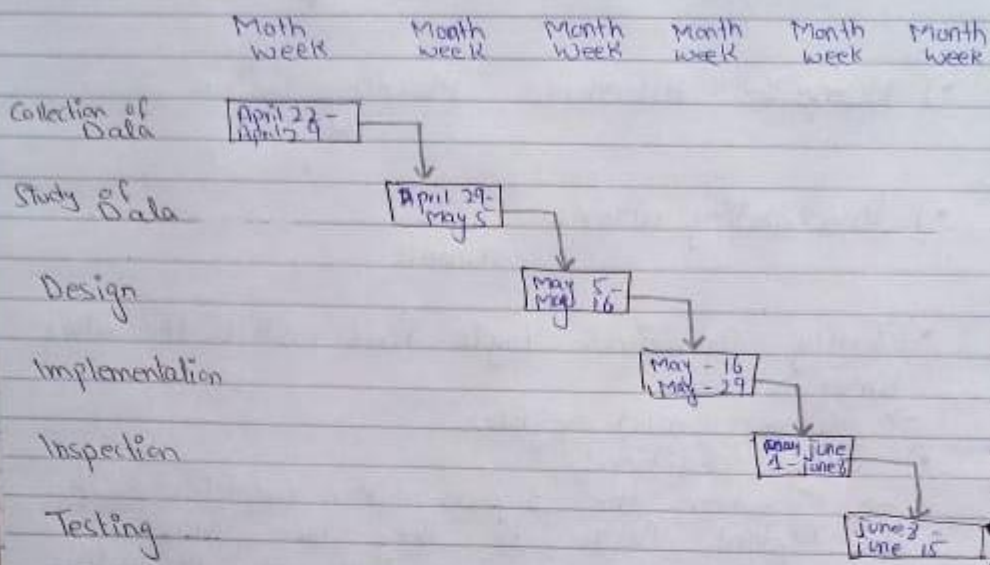 Moth Month Month Month Month Month
week week week week week week
Collection of
Data
April 22 -
April 29
Study of
Data
April 29-
May 5
Design
May 5-
May 16
Implementation
May - 16
May - 29
Inspection
june
1 - june 8
Testing
june 8 -
june 15